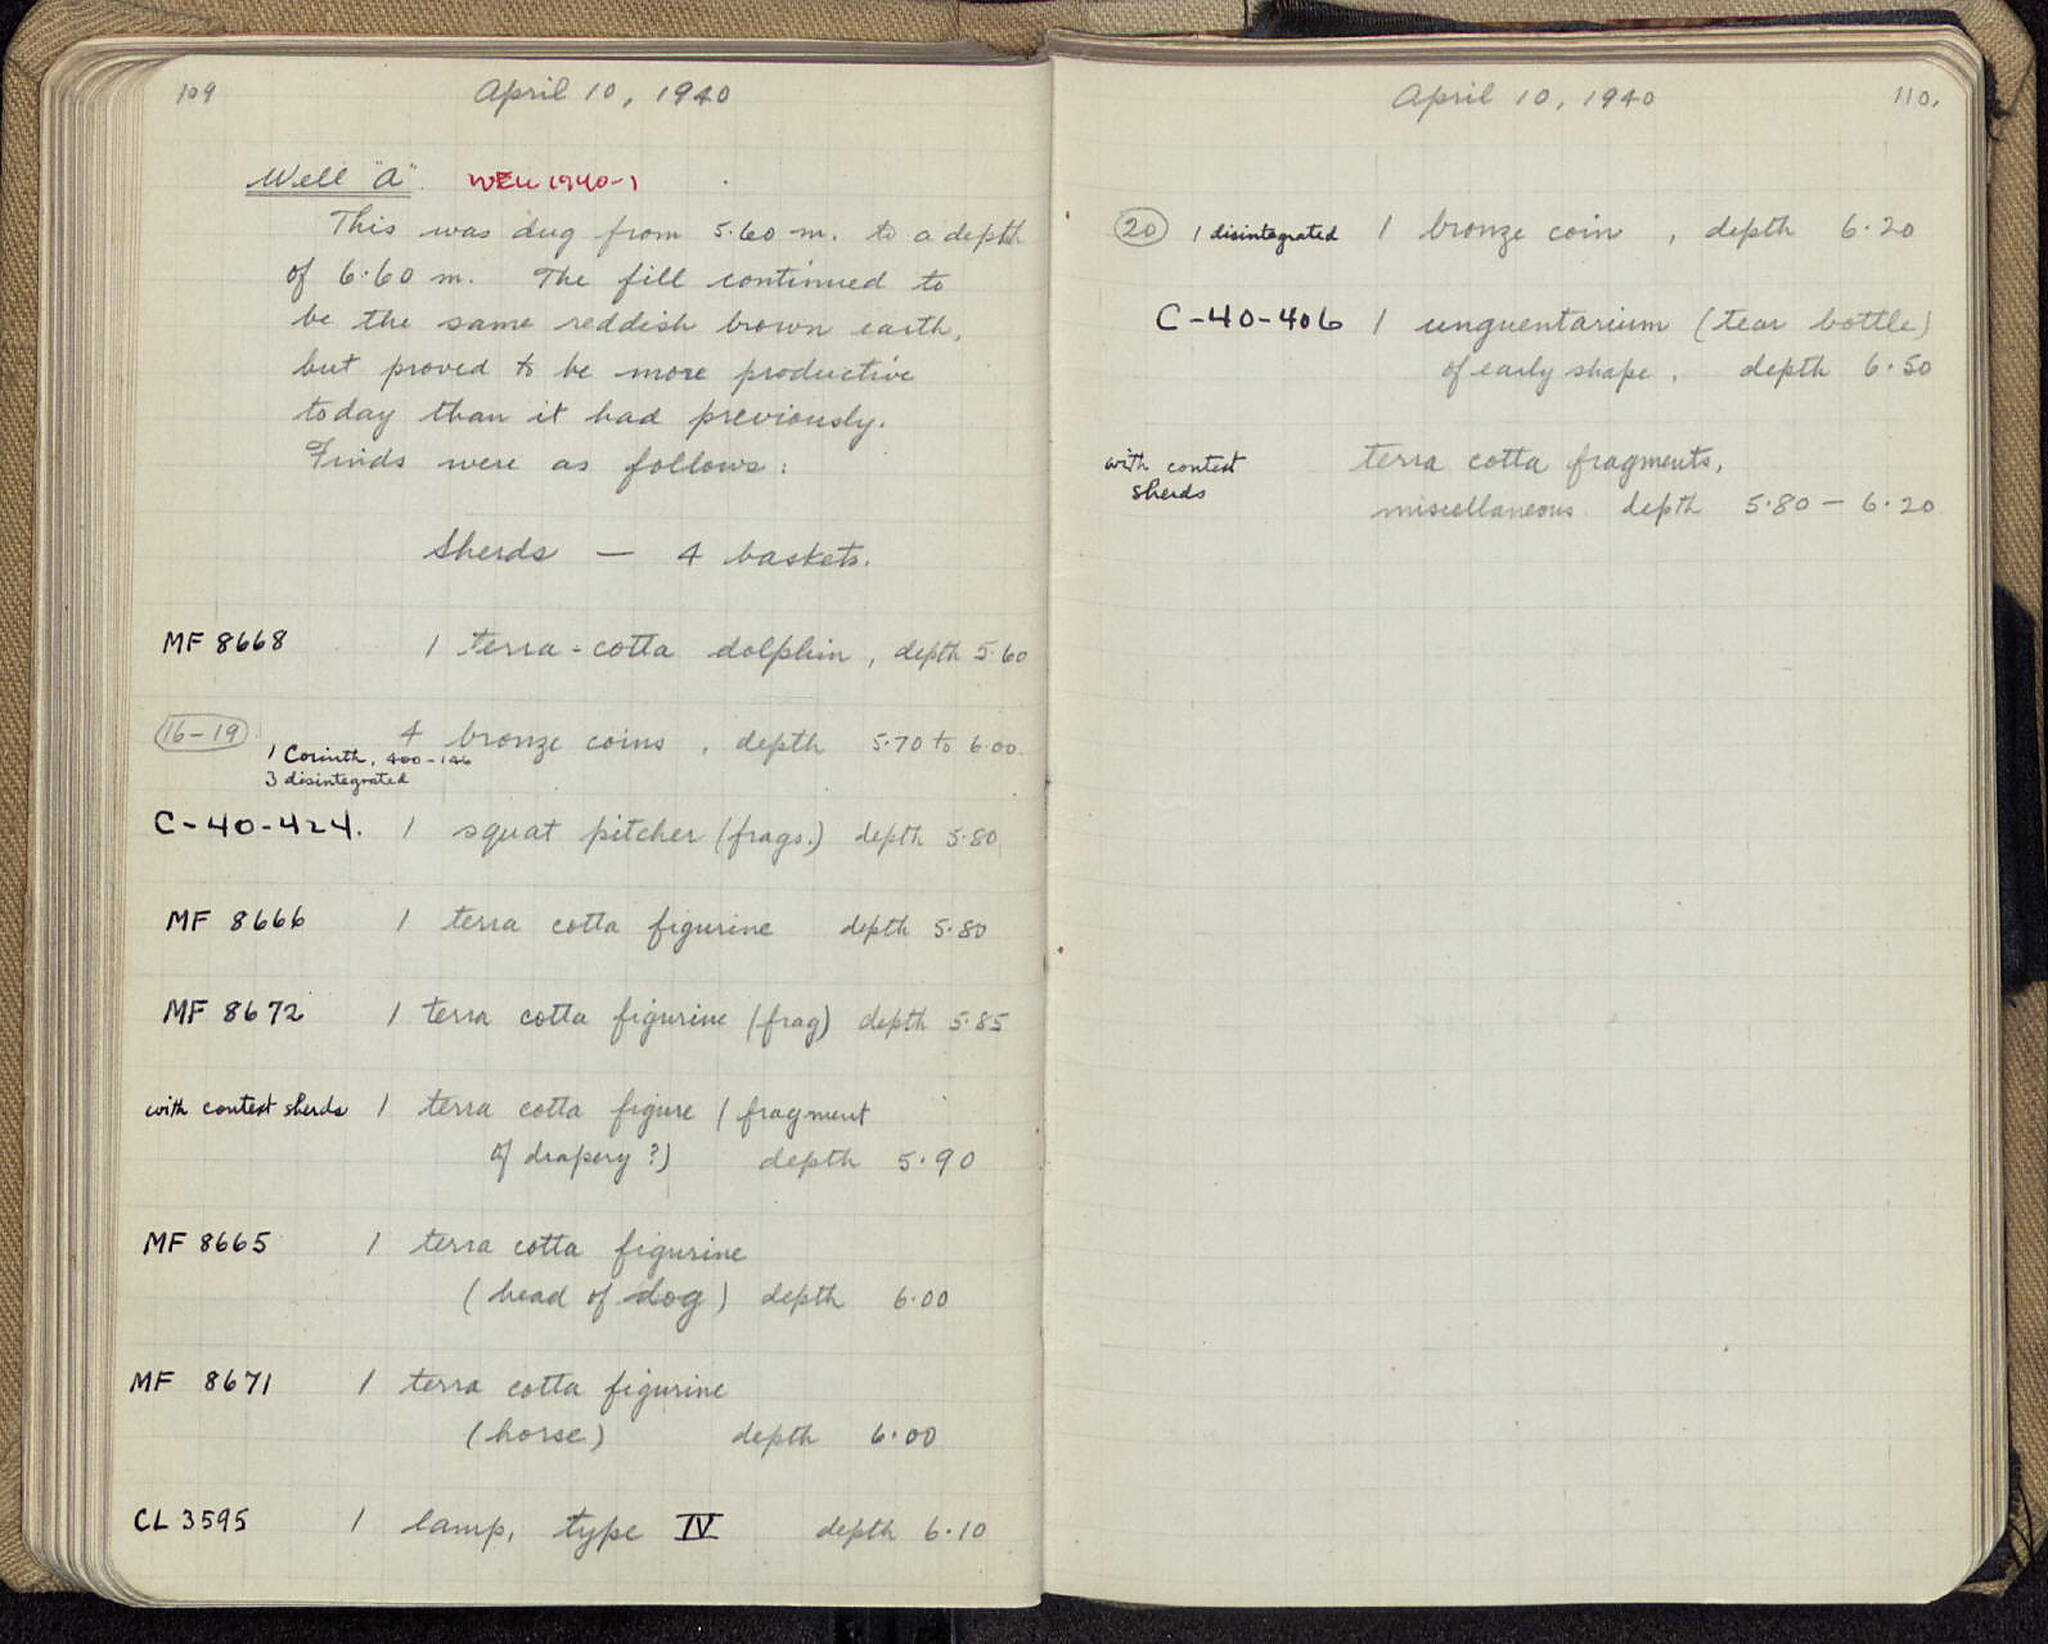 109
April 10, 1940
Well "A". WELL 1940-1
This was dug from 5.60 m. to a depth
of 6.60 m. The fill continued to
be the same reddish brown earth,
but proved to be more productive
today than it had previously.
Finds were as follows:
Sherds — 4 baskets.
MF 8668 1 terra-cotta dolphin, depth 5.60
16-19 4 bronze coins, depth 5.70 to 6.00
1 Corinth, 400-146
3 disintegrated
C-40-424. 1 squat pitcher (frags.) depth 5.80
MF 8666 1 terra cotta figurine depth 5.80
MF 8672 1 terra cotta figurine (frag) depth 5.85
with context sherds 1 terra cotta figure (fragment
of drapery?) depth 5.90
MF 8665 1 terra cotta figurine
(head of dog) depth 6.00
MF 8671 1 terra cotta figurine
(horse) depth 6.00
CL 3595 1 lamp, type IV depth 6.10
April 10, 1940 110.
20 1 disintegrated 1 bronze coin, depth 6.20
C-40-406 1 unguentarium (tear bottle)
of early shape, depth 6.50
with context terra cotta fragments,
sherds
miscellaneous depth 5.80 — 6.20